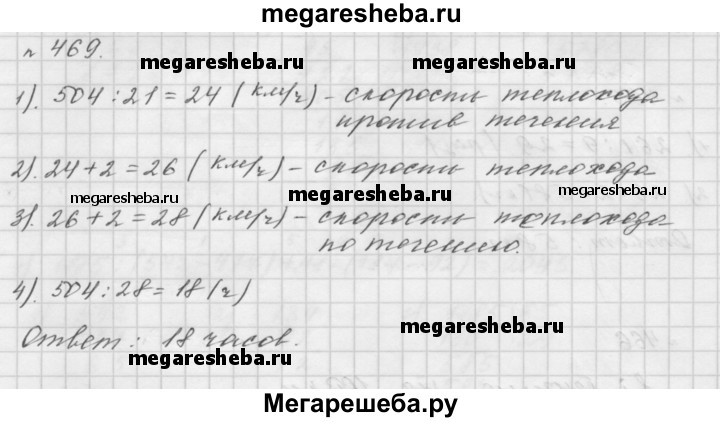 megaresheba.ru
№ 469.
megaresheba.ru megaresheba.ru
1). 504 : 21 = 24 (км/ч) - скорость теплохода
против течения
2). 24 + 2 = 26 (км/ч) - скорость теплохода
megaresheba.ru megaresheba.ru megaresheba.ru
3). 26 + 2 = 28 (км/ч) - скорость теплохода
по течению.
4). 504 : 28 = 18 (ч)
Ответ : 18 часов.
megaresheba.ru megaresheba.ru
Мегарешеба.ру